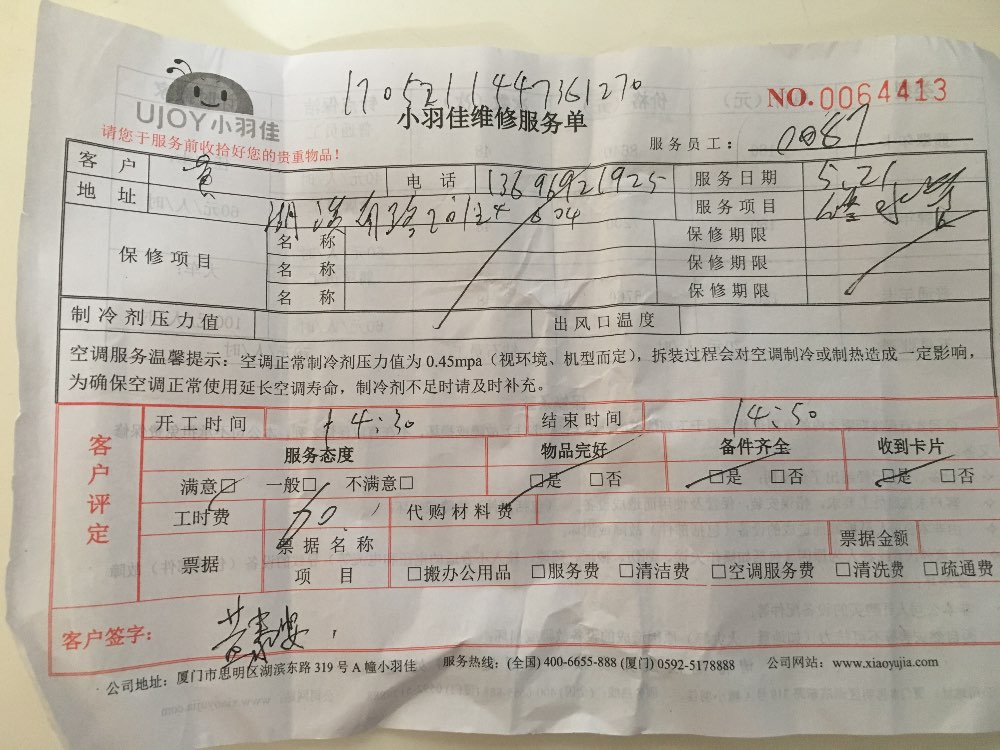 170521144736 1270
UJOY小羽佳
小羽佳维修服务单
NO.0064413
请您于服务前收拾好您的贵重物品！
服务员工： 0087
客 户 黄 电 话 13696921925 服务日期 5.21
地 址 湖滨 服务项目
保修项目 名 称 保修期限
名 称 保修期限
名 称 保修期限
制冷剂压力值 出风口温度
空调服务温馨提示：空调正常制冷剂压力值为 0.45mpa（视环境、机型而定），拆装过程会对空调制冷或制热造成一定影响，
为确保空调正常使用延长空调寿命，制冷剂不足时请及时补充。
客户评定
开工时间 14:30 结束时间 14:50
服务态度 物品完好 备件齐全 收到卡片
满意□ 一般□ 不满意□ □是 □否 □是 □否 □是 □否
工时费 70. 代购材料费
票据 票据名称 票据金额
项 目 □搬办公用品 □服务费 □清洁费 □空调服务费 □清洗费 □疏通费
客户签字： 黄
公司地址：厦门市思明区湖滨东路 319 号 A 幢小羽佳 服务热线：(全国) 400-6655-888 (厦门) 0592-5178888 公司网站：www.xiaoyujia.com